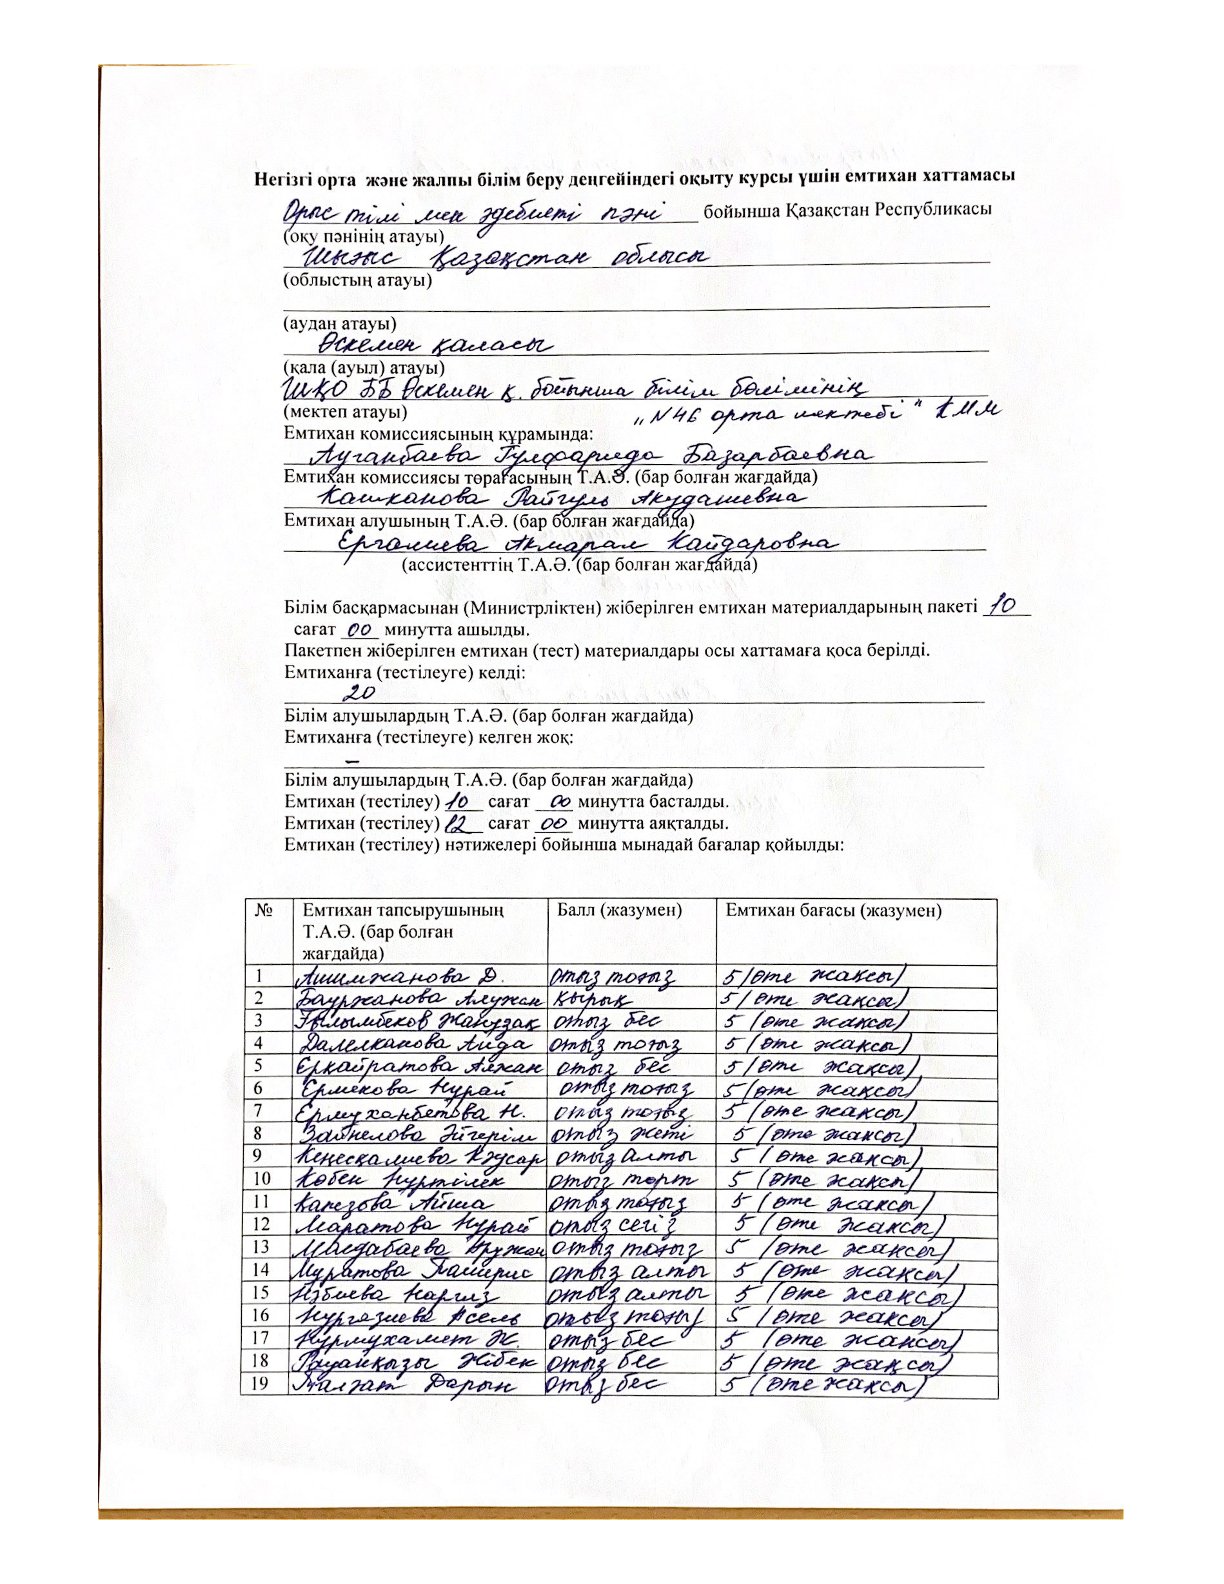 Негізгі орта және жалпы білім беру деңгейіндегі оқыту курсы үшін емтихан хаттамасы
Орыс тілі мен әдебиеті пәні бойынша Қазақстан Республикасы
(оқу пәнінің атауы)
Шығыс Қазақстан облысы
(облыстың атауы)
(аудан атауы)
Өскемен қаласы
(қала (ауыл) атауы)
ШҚО ББ Өскемен қ. бойынша білім бөлімінің
(мектеп атауы) „N46 орта мектебі" КММ
Емтихан комиссиясының құрамында:
Ауганбаева Гулфарида Базарбаевна
Емтихан комиссиясы төрағасының Т.А.Ә. (бар болған жағдайда)
Кашканова Райгуль Акудашевна
Емтихан алушының Т.А.Ә. (бар болған жағдайда)
Ергалиева Акмарал Кайдаровна
(ассистенттің Т.А.Ә. (бар болған жағдайда)
Білім басқармасынан (Министрліктен) жіберілген емтихан материалдарының пакеті 10
сағат 00 минутта ашылды.
Пакетпен жіберілген емтихан (тест) материалдары осы хаттамаға қоса берілді.
Емтиханға (тестілеуге) келді:
20
Білім алушылардың Т.А.Ә. (бар болған жағдайда)
Емтиханға (тестілеуге) келген жоқ:
–
Білім алушылардың Т.А.Ә. (бар болған жағдайда)
Емтихан (тестілеу) 10 сағат 00 минутта басталды.
Емтихан (тестілеу) 12 сағат 00 минутта аяқталды.
Емтихан (тестілеу) нәтижелері бойынша мынадай бағалар қойылды:
№ Емтихан тапсырушының Балл (жазумен) Емтихан бағасы (жазумен)
Т.А.Ә. (бар болған
жағдайда)
1 Ашимжанова Д. отыз тоғыз 5 (өте жақсы)
2 Бауржанова Аружан қырық 5 (өте жақсы)
3 Ғылымбеков Жанұзақ отыз бес 5 (өте жақсы)
4 Далелханова Аида отыз тоғыз 5 (өте жақсы)
5 Ерқайратова Аяжан отыз бес 5 (өте жақсы)
6 Ермекова Нұрай отыз тоғыз 5 (өте жақсы)
7 Ермуханбетова Н. отыз тоғыз 5 (өте жақсы)
8 Зайнелова Әйгерім отыз жеті 5 (өте жақсы)
9 Кеңесқалиева Кәусар отыз алты 5 (өте жақсы)
10 Көбен Нұртілек отыз төрт 5 (өте жақсы)
11 Айша отыз тоғыз 5 (өте жақсы)
12 Маратова Нұрай отыз сегіз 5 (өте жақсы)
13 Аружан отыз тоғыз 5 (өте жақсы)
14 Муратова отыз алты 5 (өте жақсы)
15 Нәбиева Наргиз отыз алты 5 (өте жақсы)
16 Нургазиева Асель отыз тоғыз 5 (өте жақсы)
17 Нурмухамет Ж. отыз бес 5 (өте жақсы)
18 Рауанқызы Жібек отыз бес 5 (өте жақсы)
19 Талғат Дарын отыз бес 5 (өте жақсы)